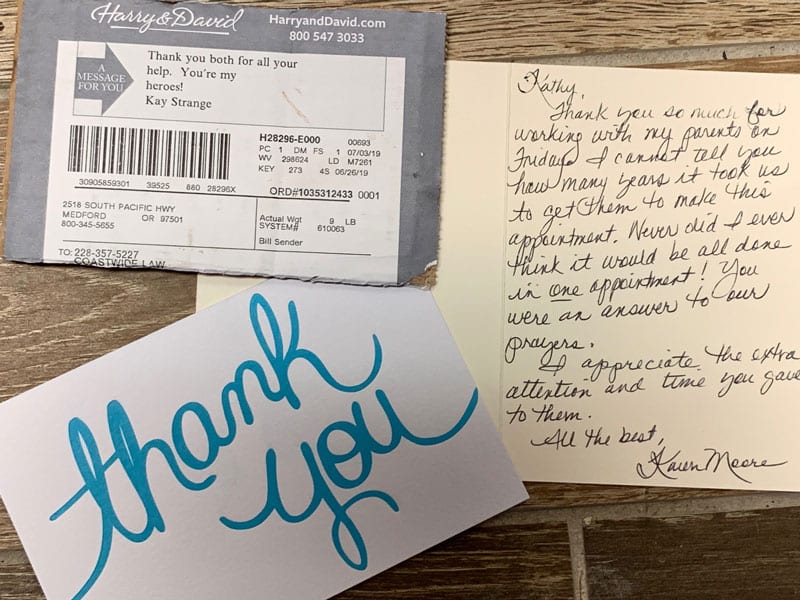 Harry & David
HarryandDavid.com
800 547 3033
A
MESSAGE
FOR YOU
Thank you both for all your
help. You're my
heroes!
Kay Strange
H28296-E000 00693
PC 1 DM FS 1 07/03/19
WV 298624 LD M7261
KEY 273 4S 06/26/19
30905859301 39525 880 28296X
ORD#1035312433 0001
2518 SOUTH PACIFIC HWY
MEDFORD OR 97501
800-345-5655
Actual Wgt 9 LB
SYSTEM# 610063
Bill Sender
TO: 228-357-5227
COASTWIDE LAW
thank
you
Kathy,
Thank you so much for
working with my parents on
Friday. I cannot tell you
how many years it took us
to get them to make this
appointment. Never did I ever
think it would be all done
in one appointment! You
were an answer to our
prayers.
I appreciate the extra
attention and time you gave
to them.
All the best,
Karen Moore